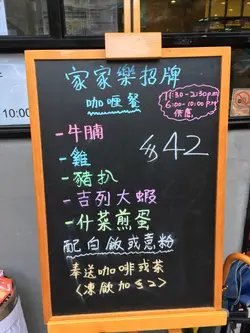 家家樂招牌
咖喱餐
11:30-2:30pm
6:00-10:00pm
供應
-牛腩
-雞
-豬扒
-吉列大蝦
-什菜煎蛋
$42
配白飯或意粉
奉送咖啡或茶
<凍飲加$2>
10:00